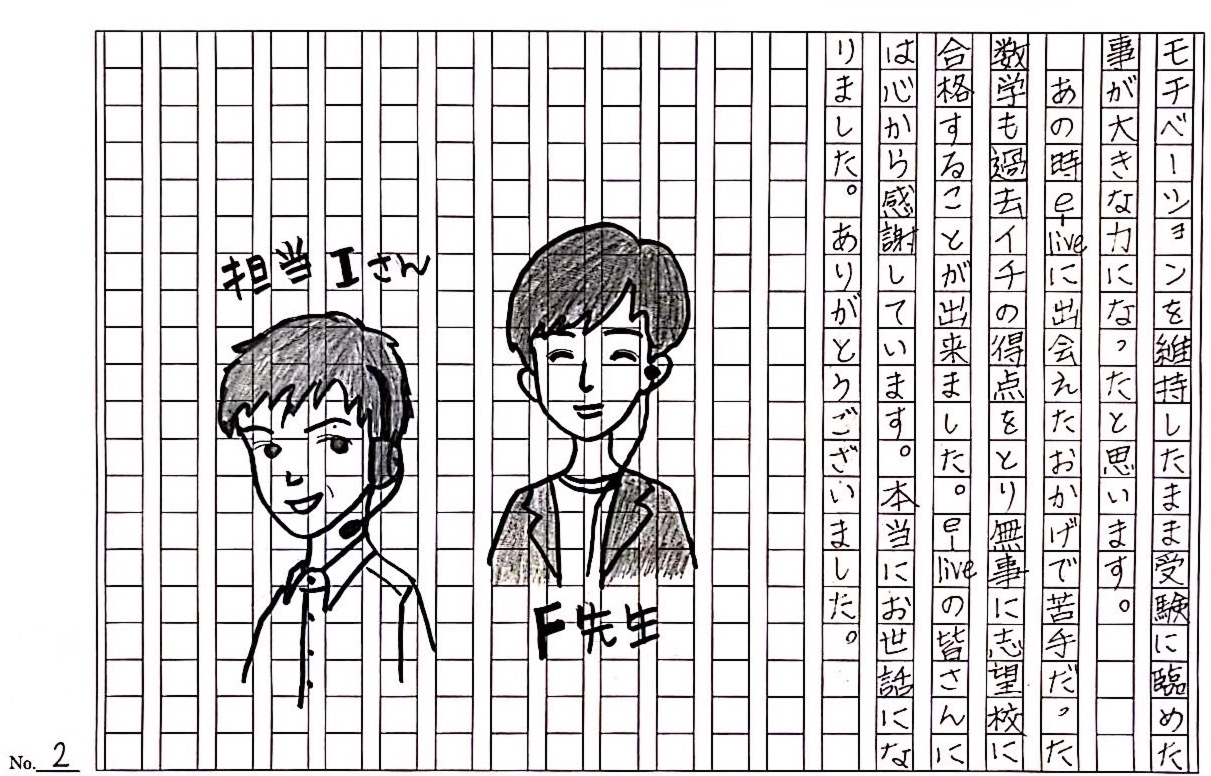 モチベーションを維持したまま受験に臨めた
事が大きな力になったと思います。
あの時e-liveに出会えたおかげで苦手だった
数学も過去イチの得点をとり無事に志望校に
合格することが出来ました。e-liveの皆さんに
は心から感謝しています。本当にお世話にな
りました。ありがとうございました。
F先生
担当Iさん
No. 2